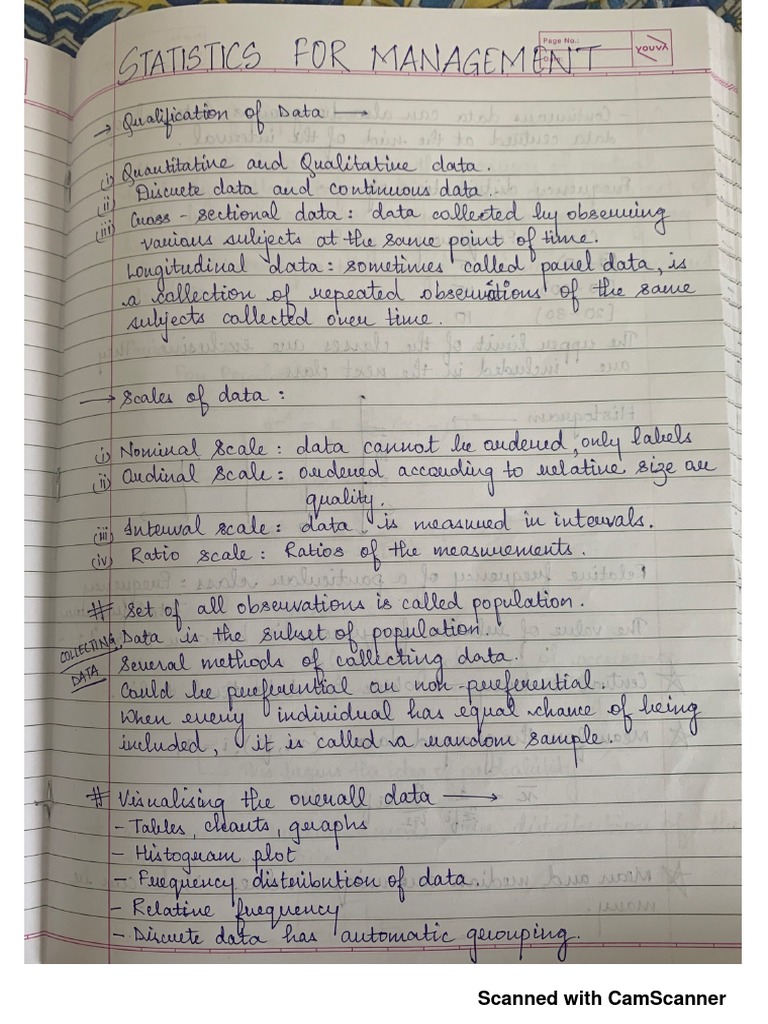 Page No.:
YOUVA
STATISTICS FOR MANAGEMENT
→ Qualification of Data →
(i) Quantitative and Qualitative data.
(ii) Discrete data and continuous data.
(iii) Cross-sectional data: data collected by observing
various subjects at the same point of time.
Longitudinal data: sometimes called panel data, is
a collection of repeated observations of the same
subjects collected over time.
→ Scales of data:
(i) Nominal Scale: data cannot be ordered, only labels
(ii) Ordinal Scale: ordered according to relative size or
quality.
(iii) Interval scale: data is measured in intervals.
(iv) Ratio scale: Ratios of the measurements.
# Set of all observations is called population.
COLLECTING DATA
Data is the subset of population.
Several methods of collecting data.
Could be preferential or non-preferential.
When every individual has equal chance of being
included, it is called a random sample.
# Visualising the overall data →
- Tables, charts, graphs
- Histogram plot
- Frequency distribution of data.
- Relative frequency
- Discrete data has automatic grouping.
Scanned with CamScanner